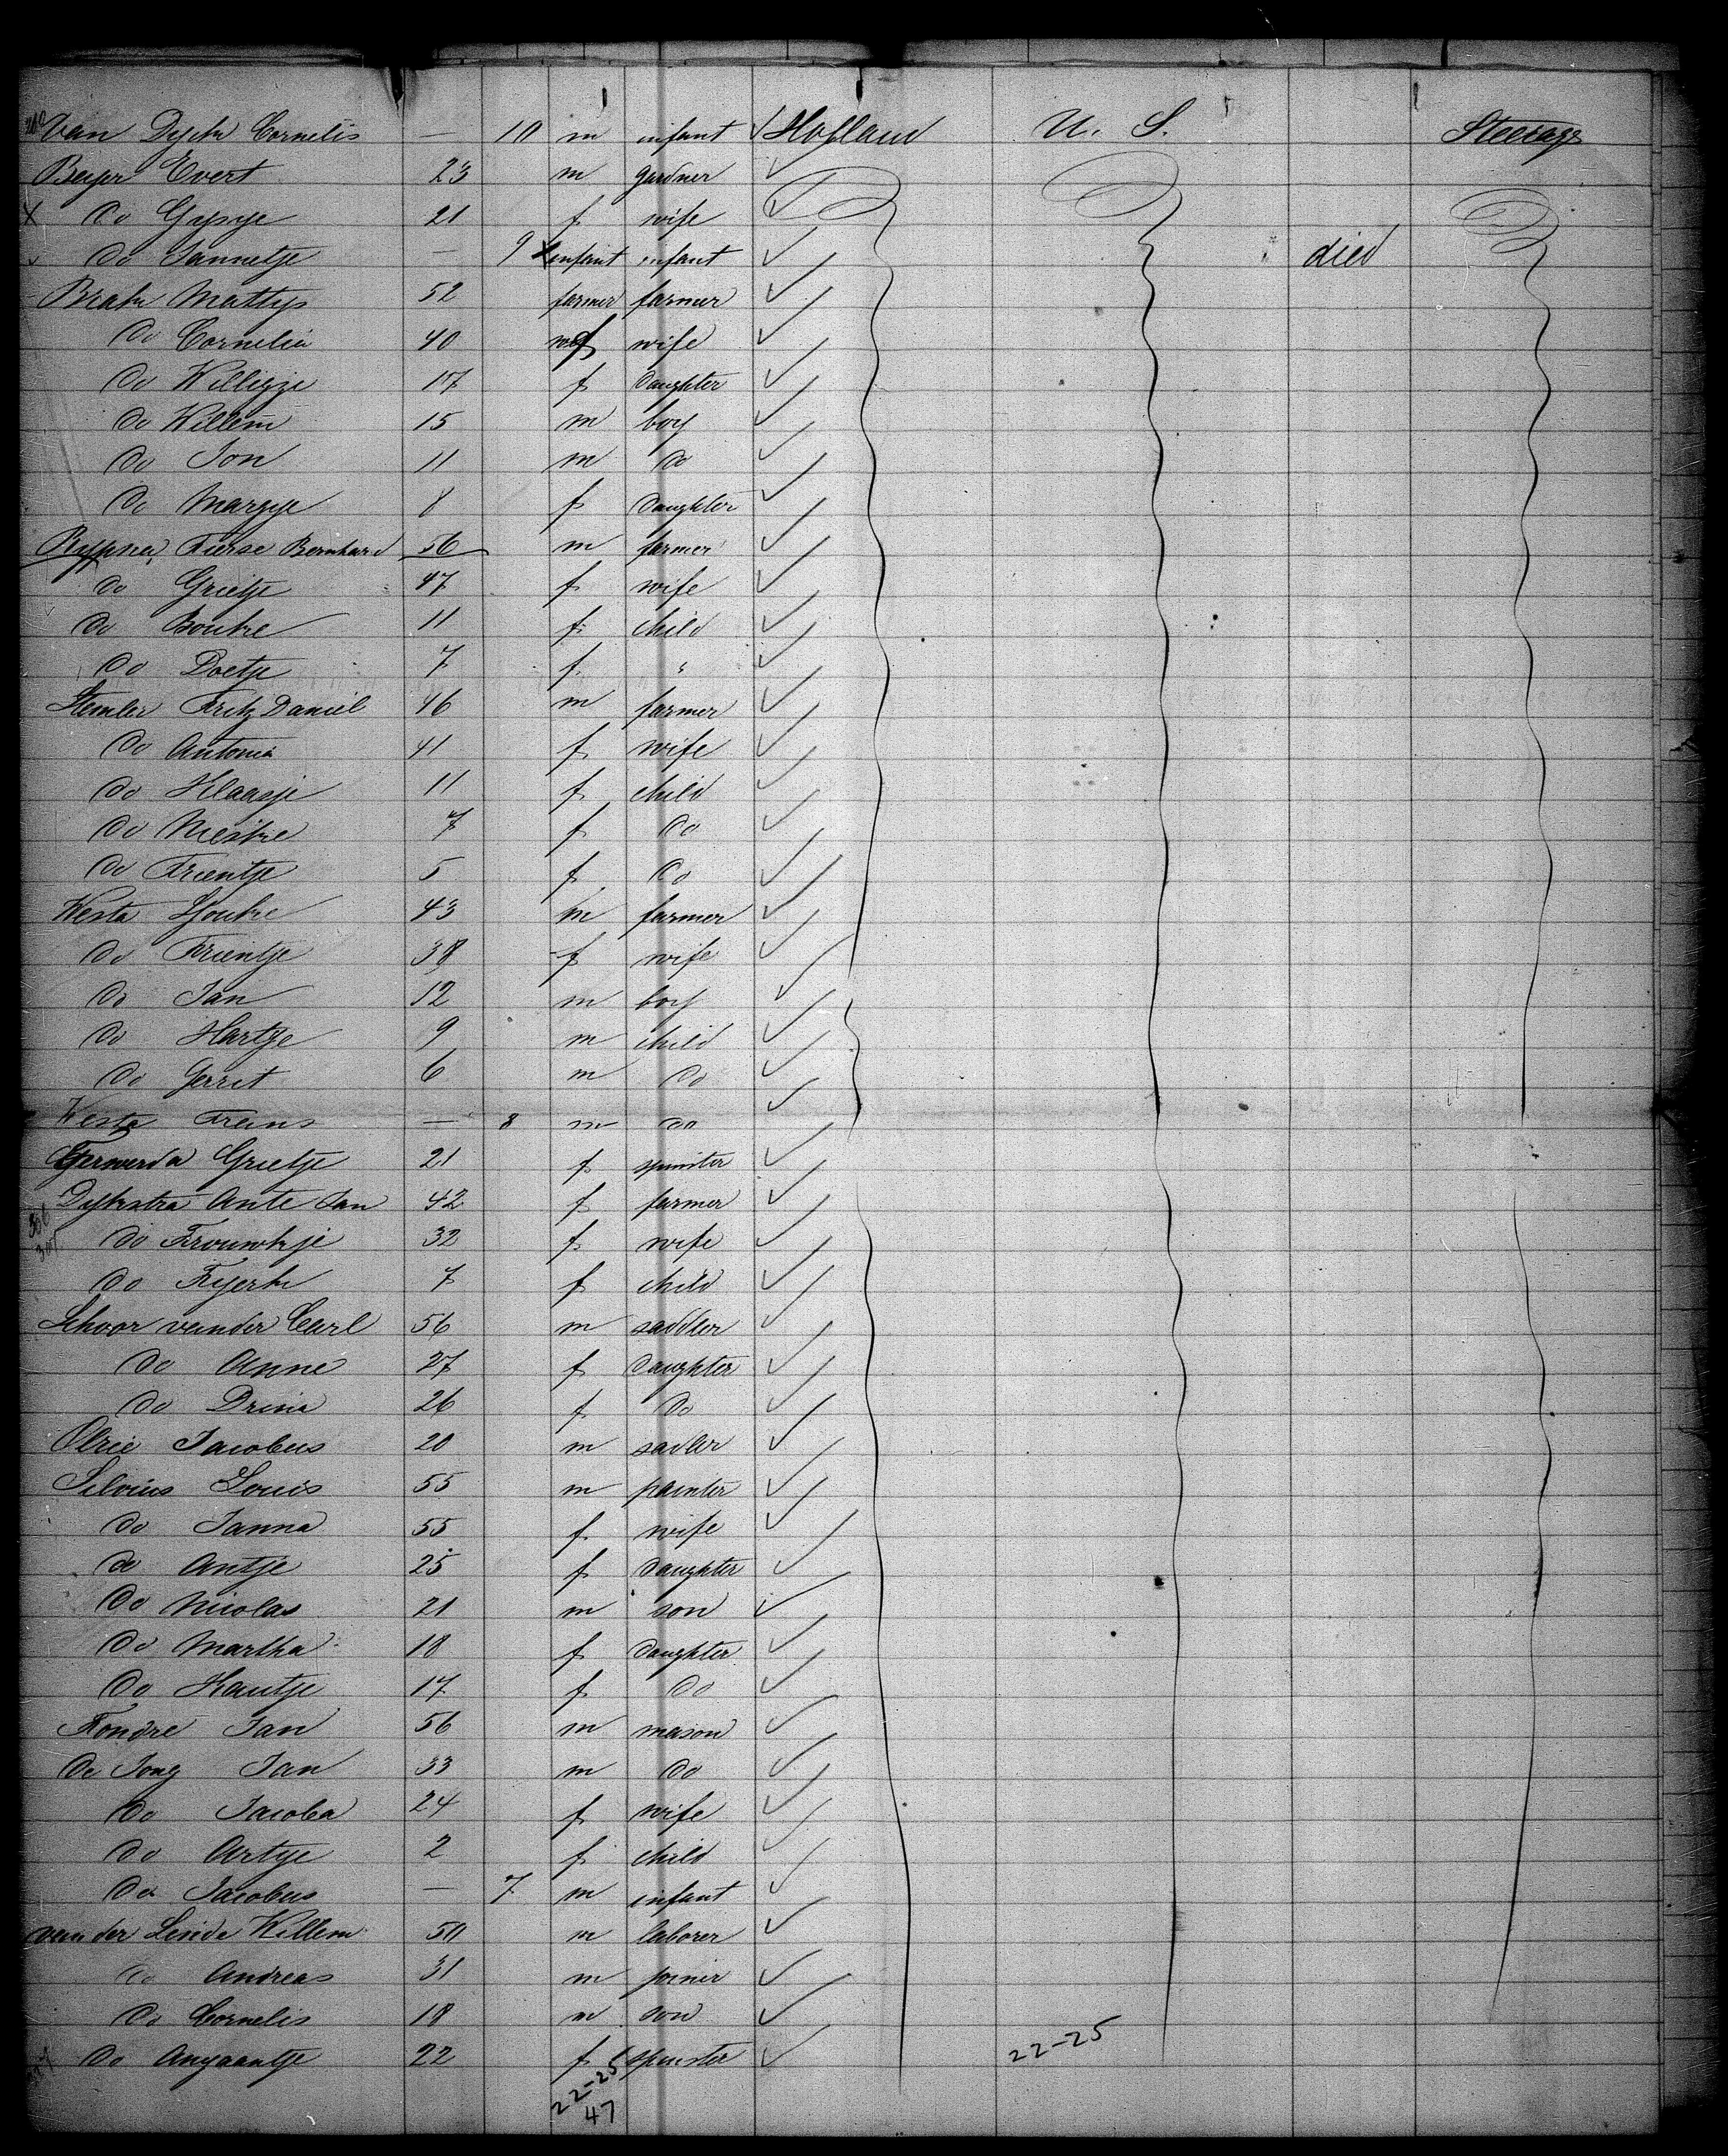 Van Dyck Cornelis — 10 m infant Holland U. S. Steerage
Beyer Evert 23 m gardner
X do Gysye 21 f wife
do Jannetje — 9 X infant infant died
Brak Mattys 52 farmer farmer
do Cornelia 40 f wife
do Willigje 17 f daughter
do Willem 15 m boy
do Jon 11 m do
do Margje 8 f daughter
Rypma, Tierse Bernhard 56 m farmer
do Grietje 47 f wife
do Boukje 11 f child
do Doetje 7 f "
Stemler Fritz Daniel 46 m farmer
do Antonia 41 f wife
do Klaasje 11 f child
do 7 f do
do Trientje 5 f do
Westa Sjouke 43 m farmer
do Trientje 38 f wife
do Jan 12 m boy
do Hartje 9 m child
do Gerrit 6 m do
Westa Freins — 8 m do
Grietje 21 f spinster
Dykstra Ante Jan 42 f farmer
do Trouwkje 32 f wife
do Tjerk 7 f child
Schoor vander Carl 56 m saddler
do Anne 27 f daughter
do Drina 26 f do
Olrie Jacobus 20 m sadler
Silvius Louis 55 m painter
do Janna 55 f wife
do Antje 25 f daughter
do Nicolas 21 m son
do Martha 18 f daughter
do Kautje 17 f do
Fondre Jan 56 m mason
De Jong Jan 33 m do
do Jacoba 24 f wife
do Artje 2 f child
do Jacobus — 7 m infant
van der Linde Willem 50 m laborer
do Andreas 31 m joiner
do Cornelis 18 m son
do Angaantje 22 f spinster
22-25
22-25
47